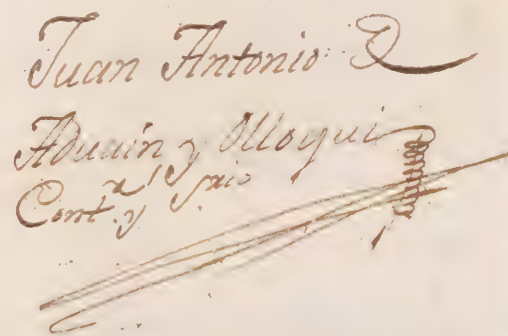 Juan Antonio D
Aduain y Olloqui
Cont.^r y S^rio